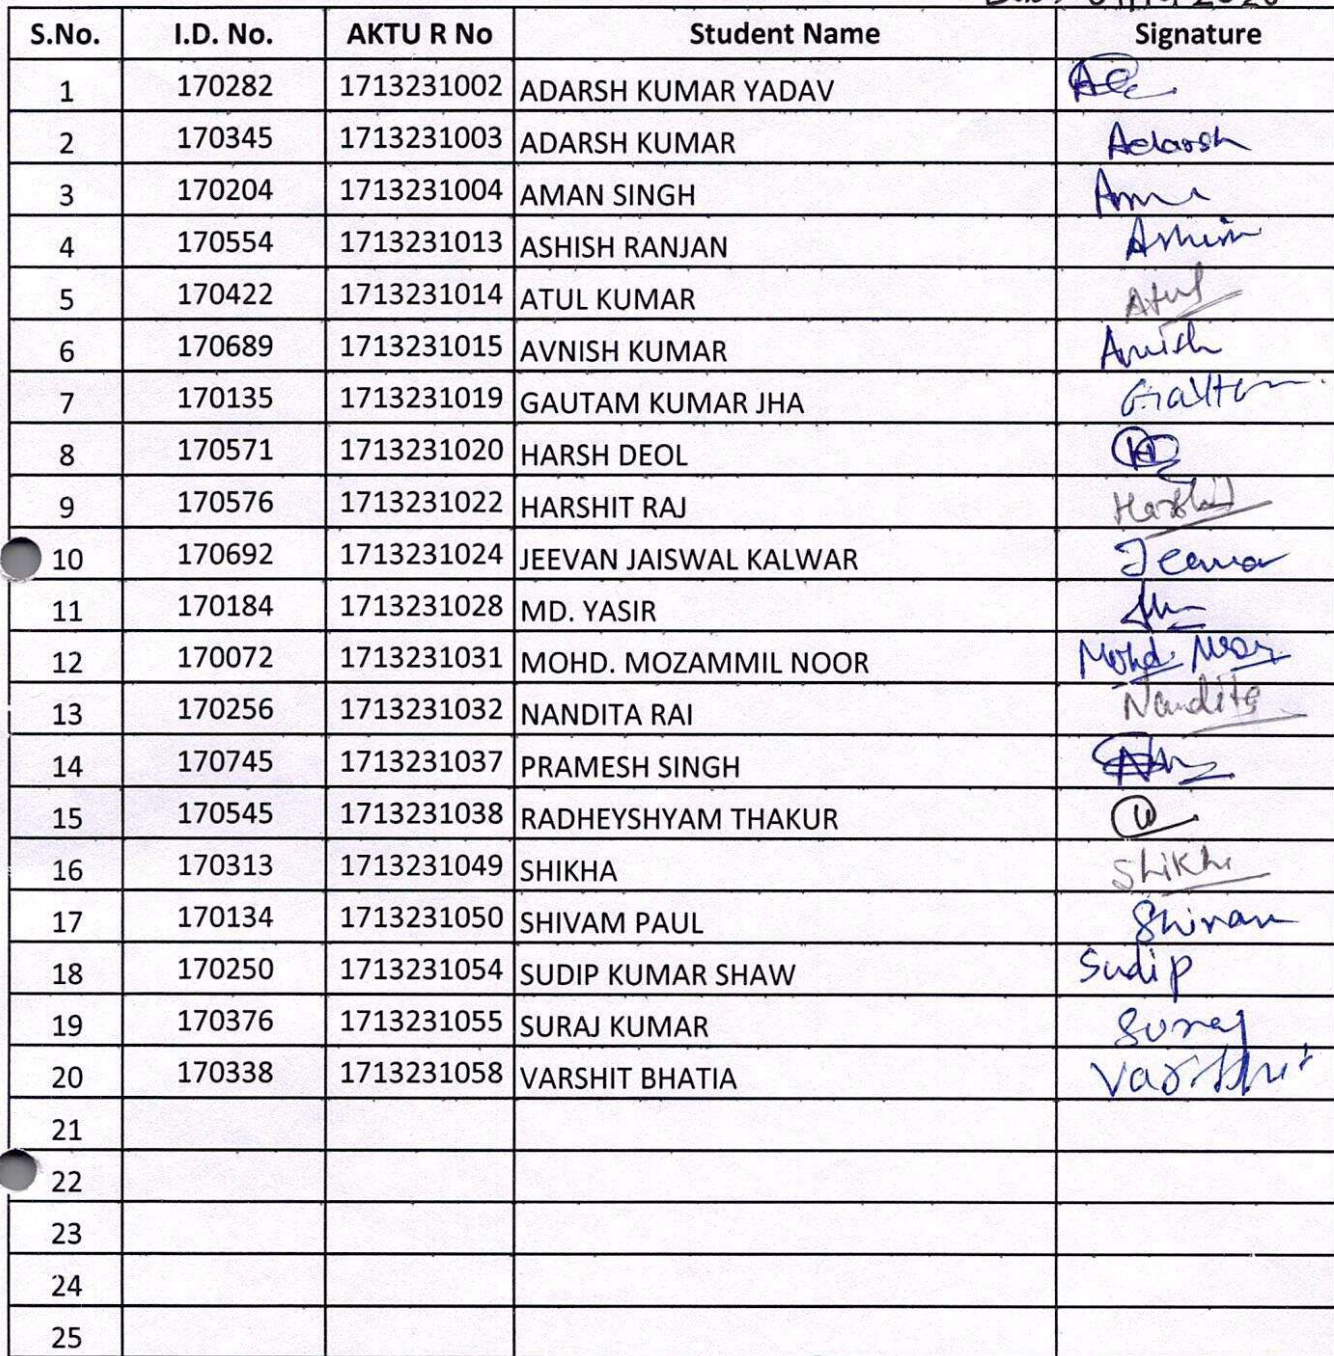 S.No. I.D. No. AKTU R No Student Name Signature
1 170282 1713231002 ADARSH KUMAR YADAV
2 170345 1713231003 ADARSH KUMAR Adarsh
3 170204 1713231004 AMAN SINGH
4 170554 1713231013 ASHISH RANJAN
5 170422 1713231014 ATUL KUMAR Atul
6 170689 1713231015 AVNISH KUMAR
7 170135 1713231019 GAUTAM KUMAR JHA
8 170571 1713231020 HARSH DEOL
9 170576 1713231022 HARSHIT RAJ Harshit
10 170692 1713231024 JEEVAN JAISWAL KALWAR
11 170184 1713231028 MD. YASIR
12 170072 1713231031 MOHD. MOZAMMIL NOOR Mohd. Noor
13 170256 1713231032 NANDITA RAI Nandita
14 170745 1713231037 PRAMESH SINGH
15 170545 1713231038 RADHEYSHYAM THAKUR
16 170313 1713231049 SHIKHA Shikha
17 170134 1713231050 SHIVAM PAUL Shivam
18 170250 1713231054 SUDIP KUMAR SHAW Sudip
19 170376 1713231055 SURAJ KUMAR Suraj
20 170338 1713231058 VARSHIT BHATIA Varshit
21
22
23
24
25